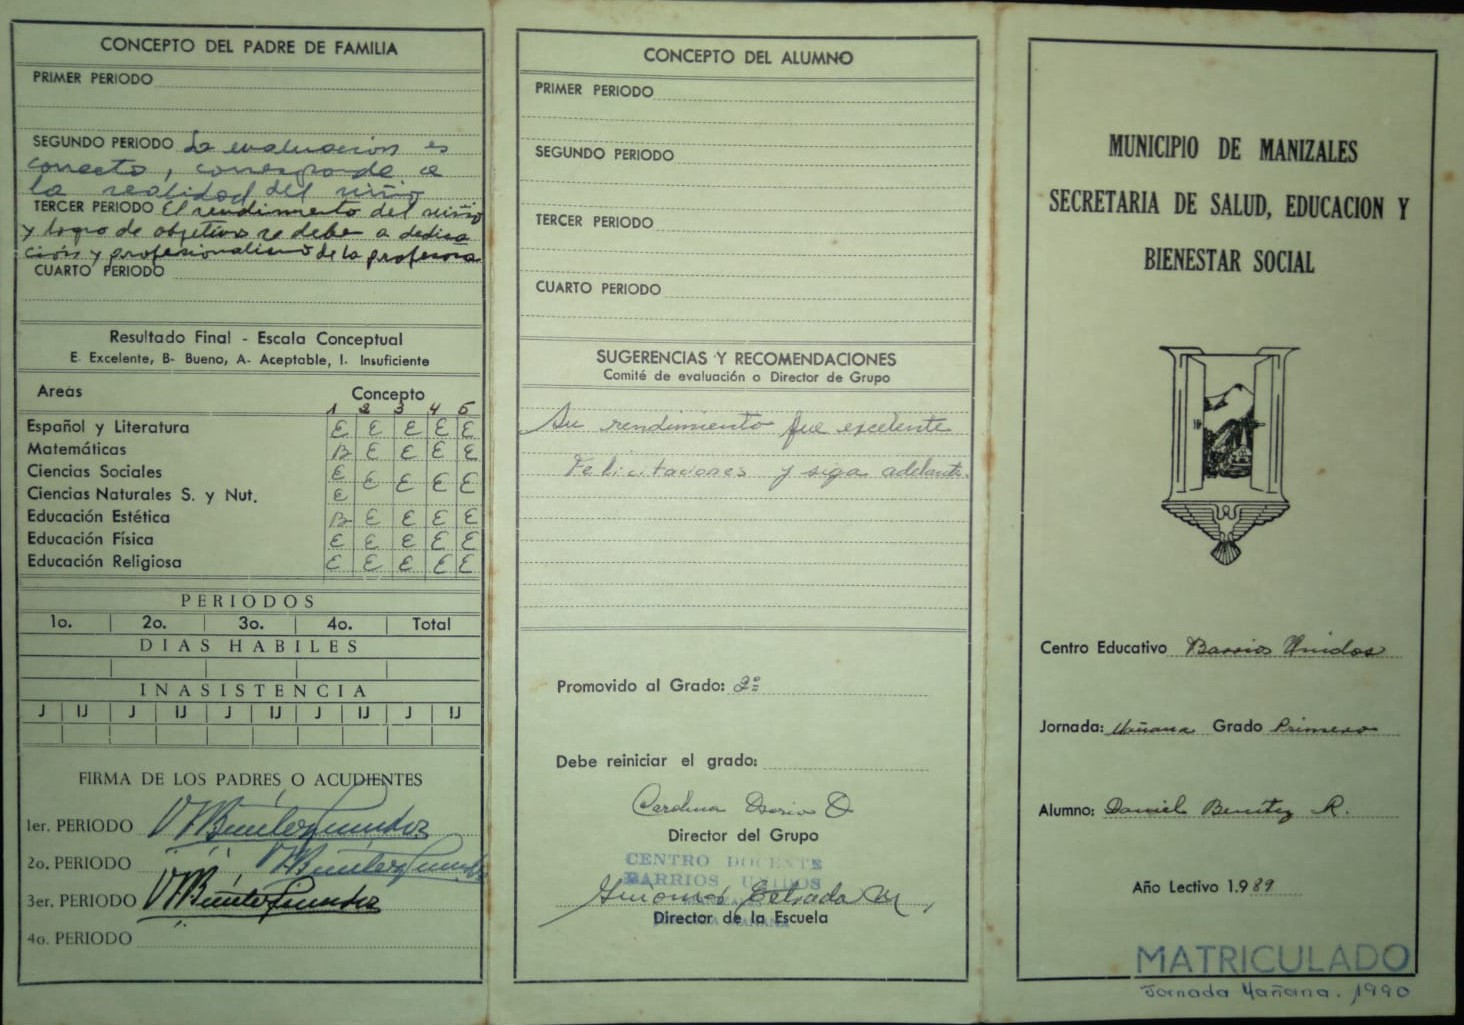 CONCEPTO DEL PADRE DE FAMILIA
PRIMER PERIODO
SEGUNDO PERIODO La evaluación es
correcta, corresponde a
la realidad del niño
TERCER PERIODO El rendimiento del niño
y logro de objetivos se debe a dedica
ción y profesionalismo de la profesora
CUARTO PERIODO
Resultado Final - Escala Conceptual
E Excelente, B- Bueno, A- Aceptable, I- Insuficiente
Areas Concepto
1 2 3 4 5
Español y Literatura E E E E E
Matemáticas B E E E E
Ciencias Sociales E
E E E E
Ciencias Naturales S. y Nut. E
Educación Estética B E E E E
Educación Física E E E E E
Educación Religiosa E E E E E
PERIODOS
1o. 2o. 3o. 4o. Total
DIAS HABILES
INASISTENCIA
J IJ J IJ J IJ J IJ J IJ
FIRMA DE LOS PADRES O ACUDIENTES
1er. PERIODO
2o. PERIODO
3er. PERIODO
4o. PERIODO
CONCEPTO DEL ALUMNO
PRIMER PERIODO
SEGUNDO PERIODO
TERCER PERIODO
CUARTO PERIODO
SUGERENCIAS Y RECOMENDACIONES
Comité de evaluación o Director de Grupo
Su rendimiento fue excelente
Felicitaciones y siga adelante.
Promovido al Grado: 2º
Debe reiniciar el grado:
Carolina Osorio O
Director del Grupo
CENTRO DOCENTE
BARRIOS UNIDOS
Estrada
Director de la Escuela
MUNICIPIO DE MANIZALES
SECRETARIA DE SALUD, EDUCACION Y
BIENESTAR SOCIAL
Centro Educativo Barrios Unidos
Jornada: Mañana Grado Primero
Alumno: Daniel Benítez R.
Año Lectivo 1.989
MATRICULADO
Jornada Mañana. 1990